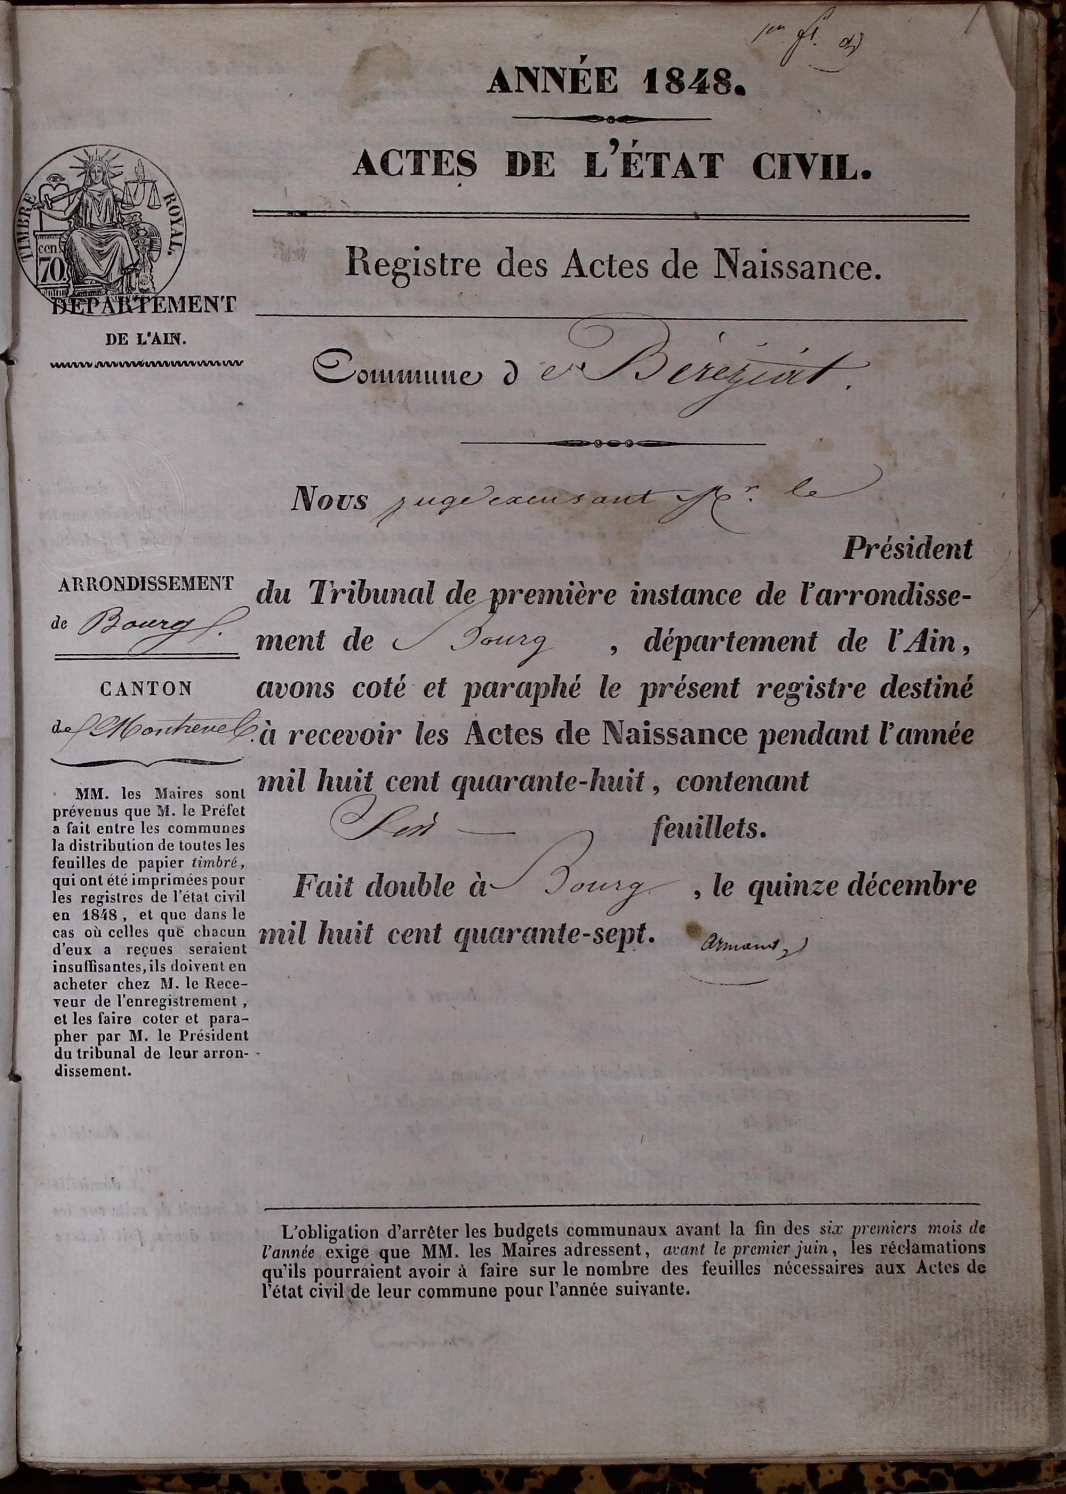 pr ft.
ANNÉE 1848.
ACTES DE L'ÉTAT CIVIL.
TIMBRE ROYAL.
cen
70
Registre des Actes de Naissance.
DÉPARTEMENT
DE L'AIN.
Commune de Béréziat.
Nous juge excusant Mr. le
Président
du Tribunal de première instance de l'arrondisse-
ment de Bourg, département de l'Ain,
avons coté et paraphé le présent registre destiné
à recevoir les Actes de Naissance pendant l'année
mil huit cent quarante-huit, contenant
feuillets.
Fait double à Bourg, le quinze décembre
mil huit cent quarante-sept.
ARRONDISSEMENT
de Bourg.
CANTON
de Montrevel.
MM. les Maires sont
prévenus que M. le Préfet
a fait entre les communes
la distribution de toutes les
feuilles de papier timbré,
qui ont été imprimées pour
les registres de l'état civil
en 1848, et que dans le
cas où celles que chacun
d'eux a reçues seraient
insuffisantes, ils doivent en
acheter chez M. le Rece-
veur de l'enregistrement,
et les faire coter et para-
pher par M. le Président
du tribunal de leur arron-
dissement.
L'obligation d'arrêter les budgets communaux avant la fin des six premiers mois de
l'année exige que MM. les Maires adressent, avant le premier juin, les réclamations
qu'ils pourraient avoir à faire sur le nombre des feuilles nécessaires aux Actes de
l'état civil de leur commune pour l'année suivante.